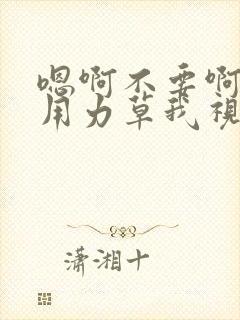 嗯啊不要啊
用力草我視
潇湘十